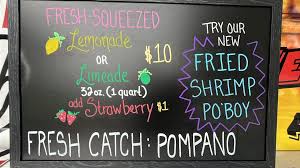 FRESH-SQUEEZED
Lemonade
OR
Limeade
$10
32oz. (1 quart)
add Strawberry $1
TRY OUR
NEW
FRIED
SHRIMP
PO'BOY
FRESH CATCH: POMPANO